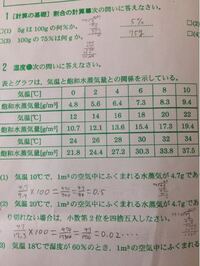 1 [計算の基礎] 割合の計算■次の問いに答えなさい。
□(1) 5gは100gの何%か。 5%
□(3) 100gの75%は何gか。 75g
2 湿度●次の問いに答えなさい。
表とグラフは、気温と飽和水蒸気量との関係を示している。
気温[℃] 0 2 4 6 8 10
飽和水蒸気量[g/m³] 4.8 5.6 6.4 7.3 8.3 9.4
気温[℃] 12 14 16 18 20 22
飽和水蒸気量[g/m³] 10.7 12.1 13.6 15.4 17.3 19.4
気温[℃] 24 26 28 30 32 34
飽和水蒸気量[g/m³] 21.8 24.4 27.2 30.3 33.8 37.5
(1) 気温10℃で、1m³の空気中にふくまれる水蒸気が4.7gであ
×100 = = 0.5
(2) 気温20℃で、1m³の空気中にふくまれる水蒸気が4.7gであ
り切れない場合は、小数第2位を四捨五入しなさい。
4.7 17.3 ×100 = = 0.02
3) 気温18℃で湿度が60%のとき、1m³の空気中にふくま